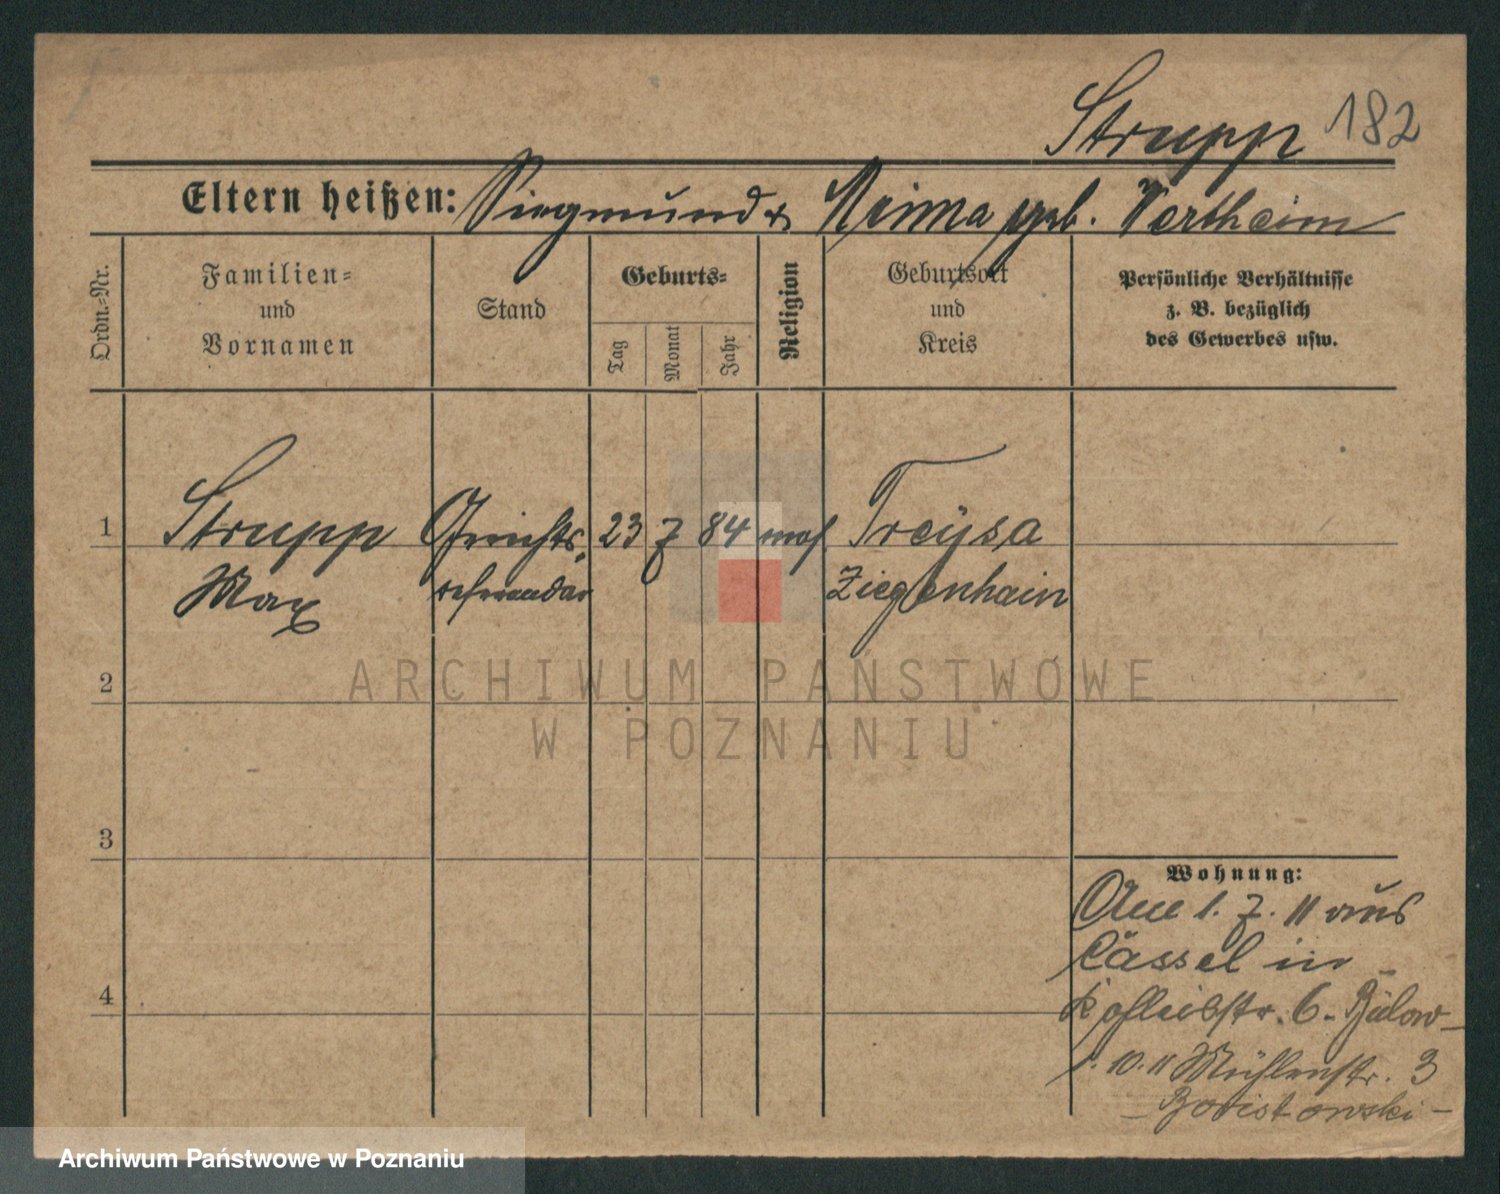 Strupp 182
Eltern heißen: Siegmund & Minna geb. Wertheim
Ordn.-Nr.
Familien- und Vornamen
Stand
Geburts-
Tag
Monat
Jahr
Religion
Geburtsort und Kreis
Persönliche Verhältnisse z. B. bezüglich des Gewerbes usw.
1
Strupp Gerichts- 23 7 84 mos Treysa
Max referendar Ziegenhain
2
ARCHIWUM PAŃSTWOWE
W POZNANIU
3
Wohnung:
Am 1. 7. 11 aus
Cassel in
6. Bülow
1. 10. 11 Mühlenstr. 3
Archiwum Państwowe w Poznaniu